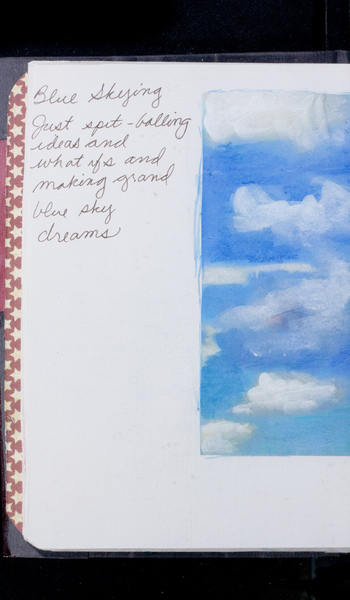 Blue Skying
Just spit-balling
ideas and
what ifs and
making grand
blue sky
dreams